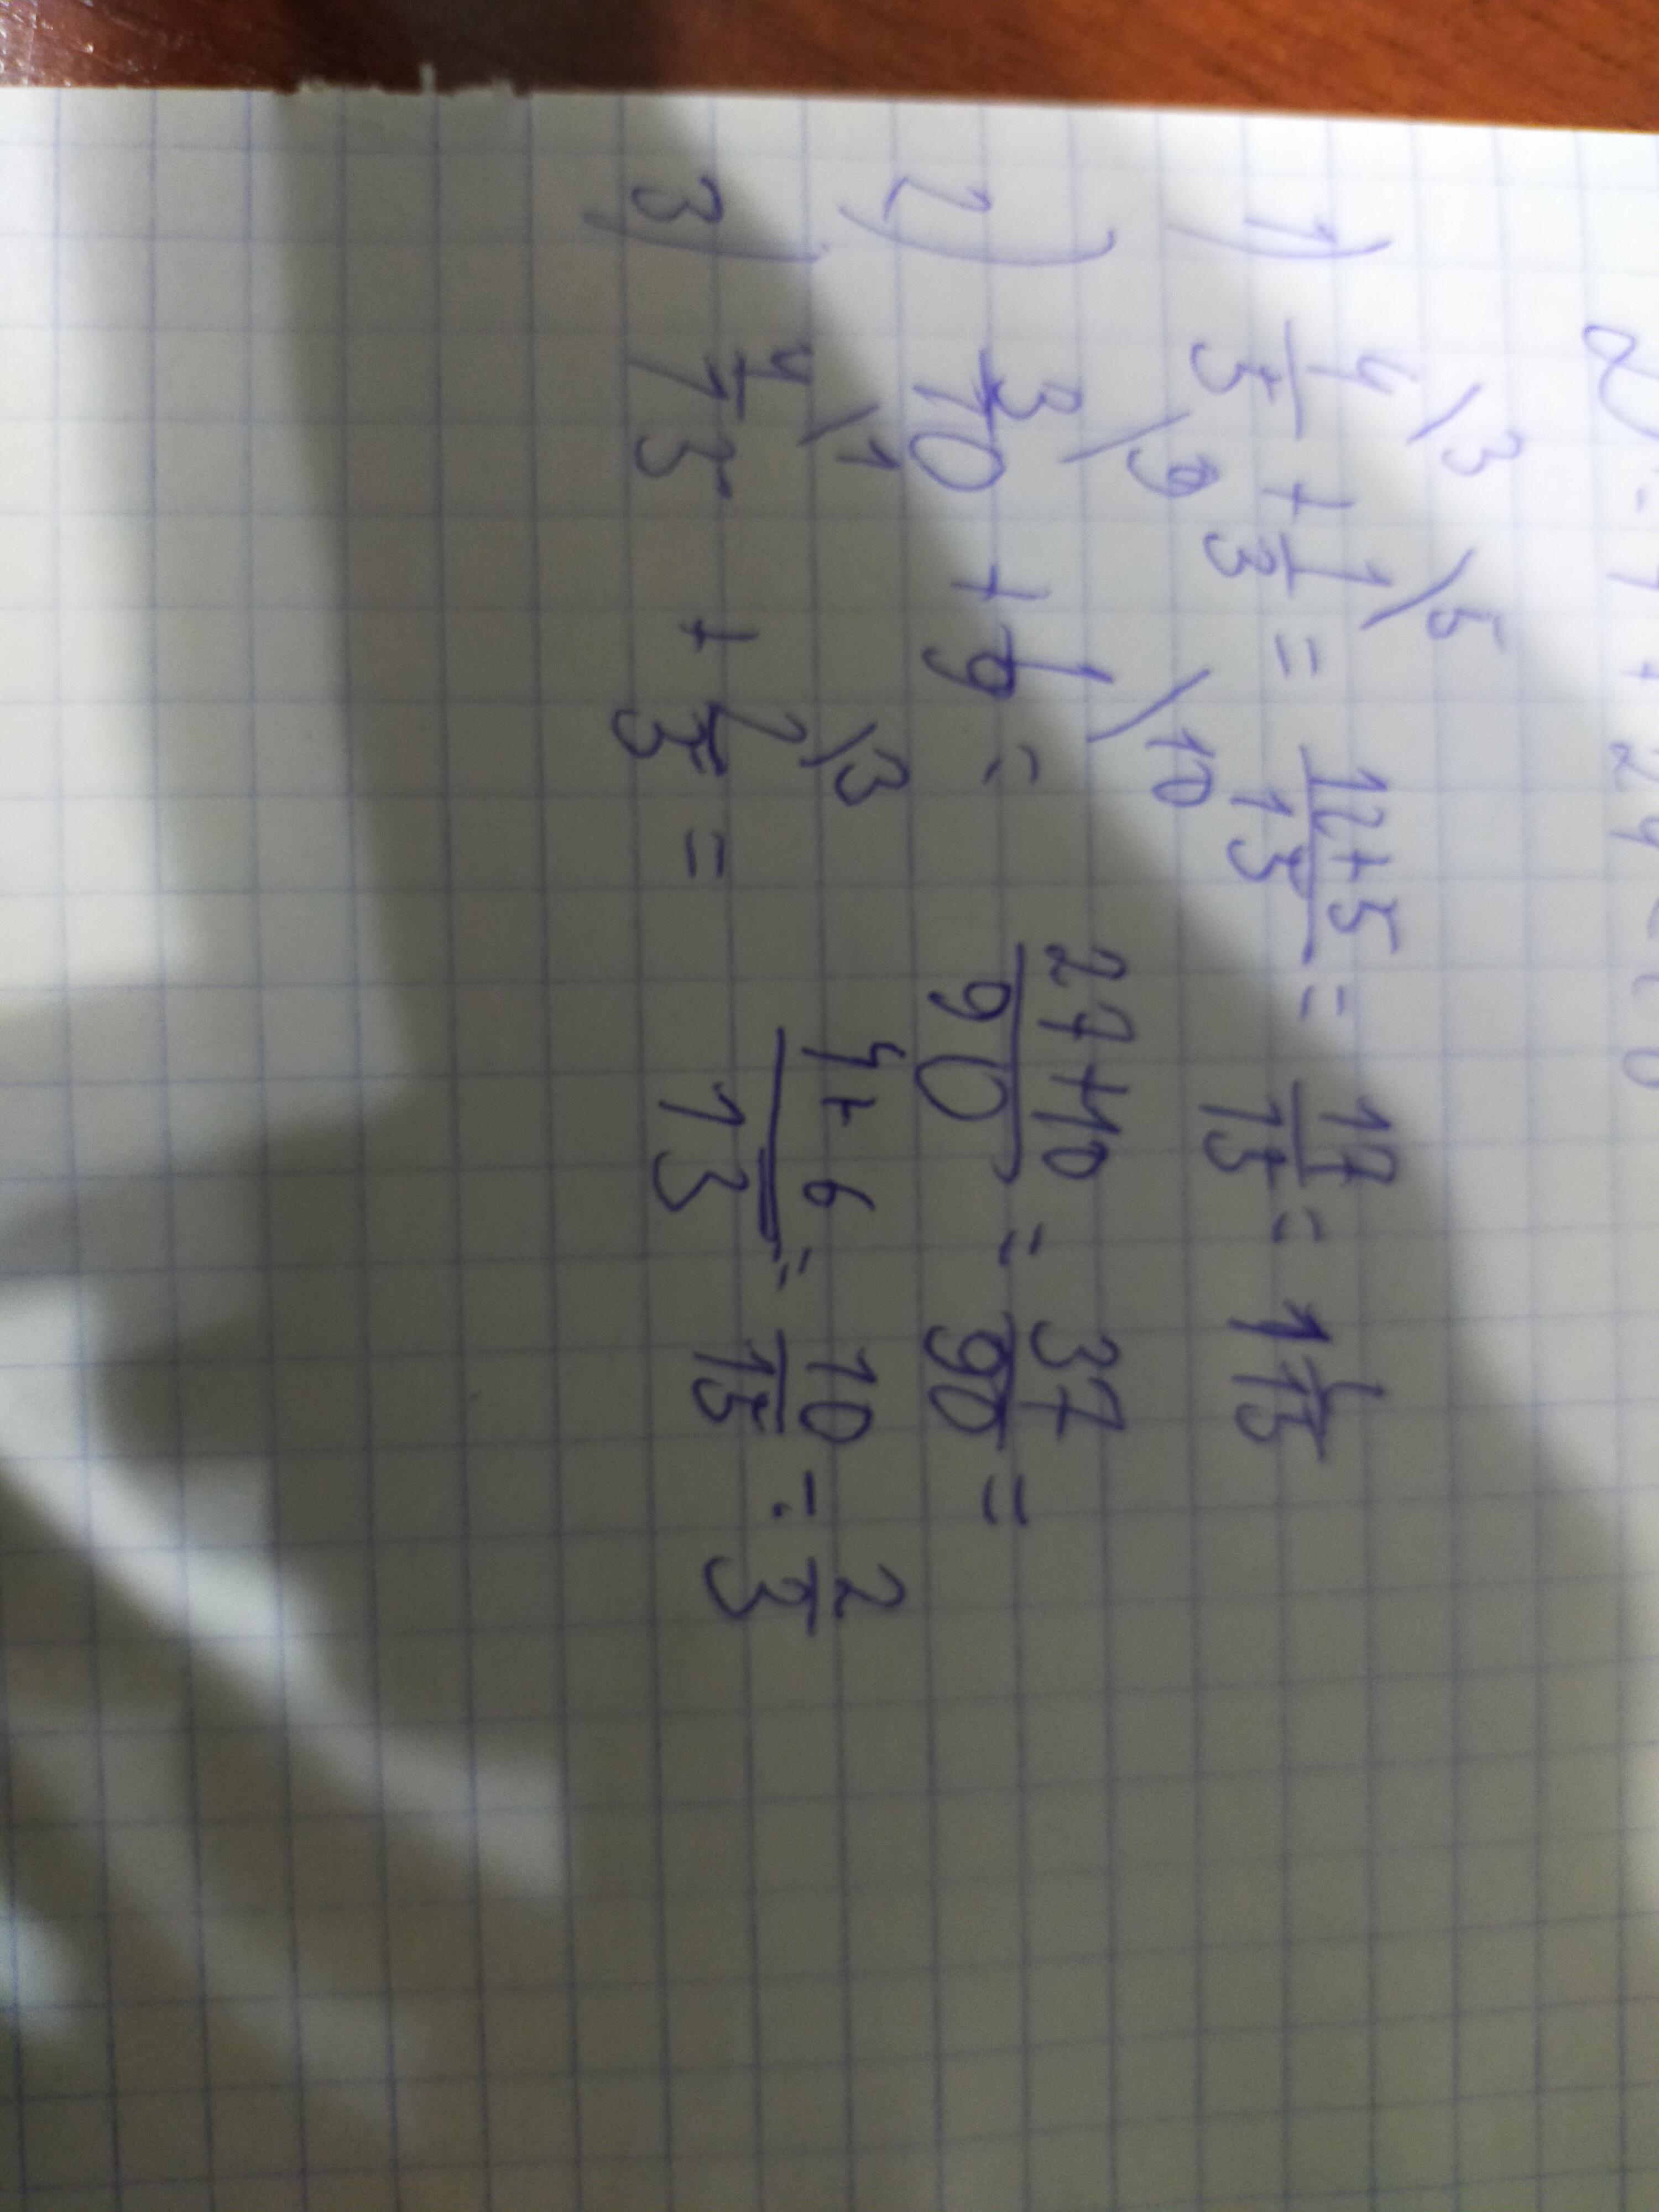 1) 4/5 \3 + 1/3 \5 = 12+5/15 = 17/15 = 1 1/15
2) 3/10 \9 + 1/9 \10 = 27+10/90 = 37/90 =
3) 4/15 \1 + 2/5 \3 = 4+6/15 = 10/15 = 2/3